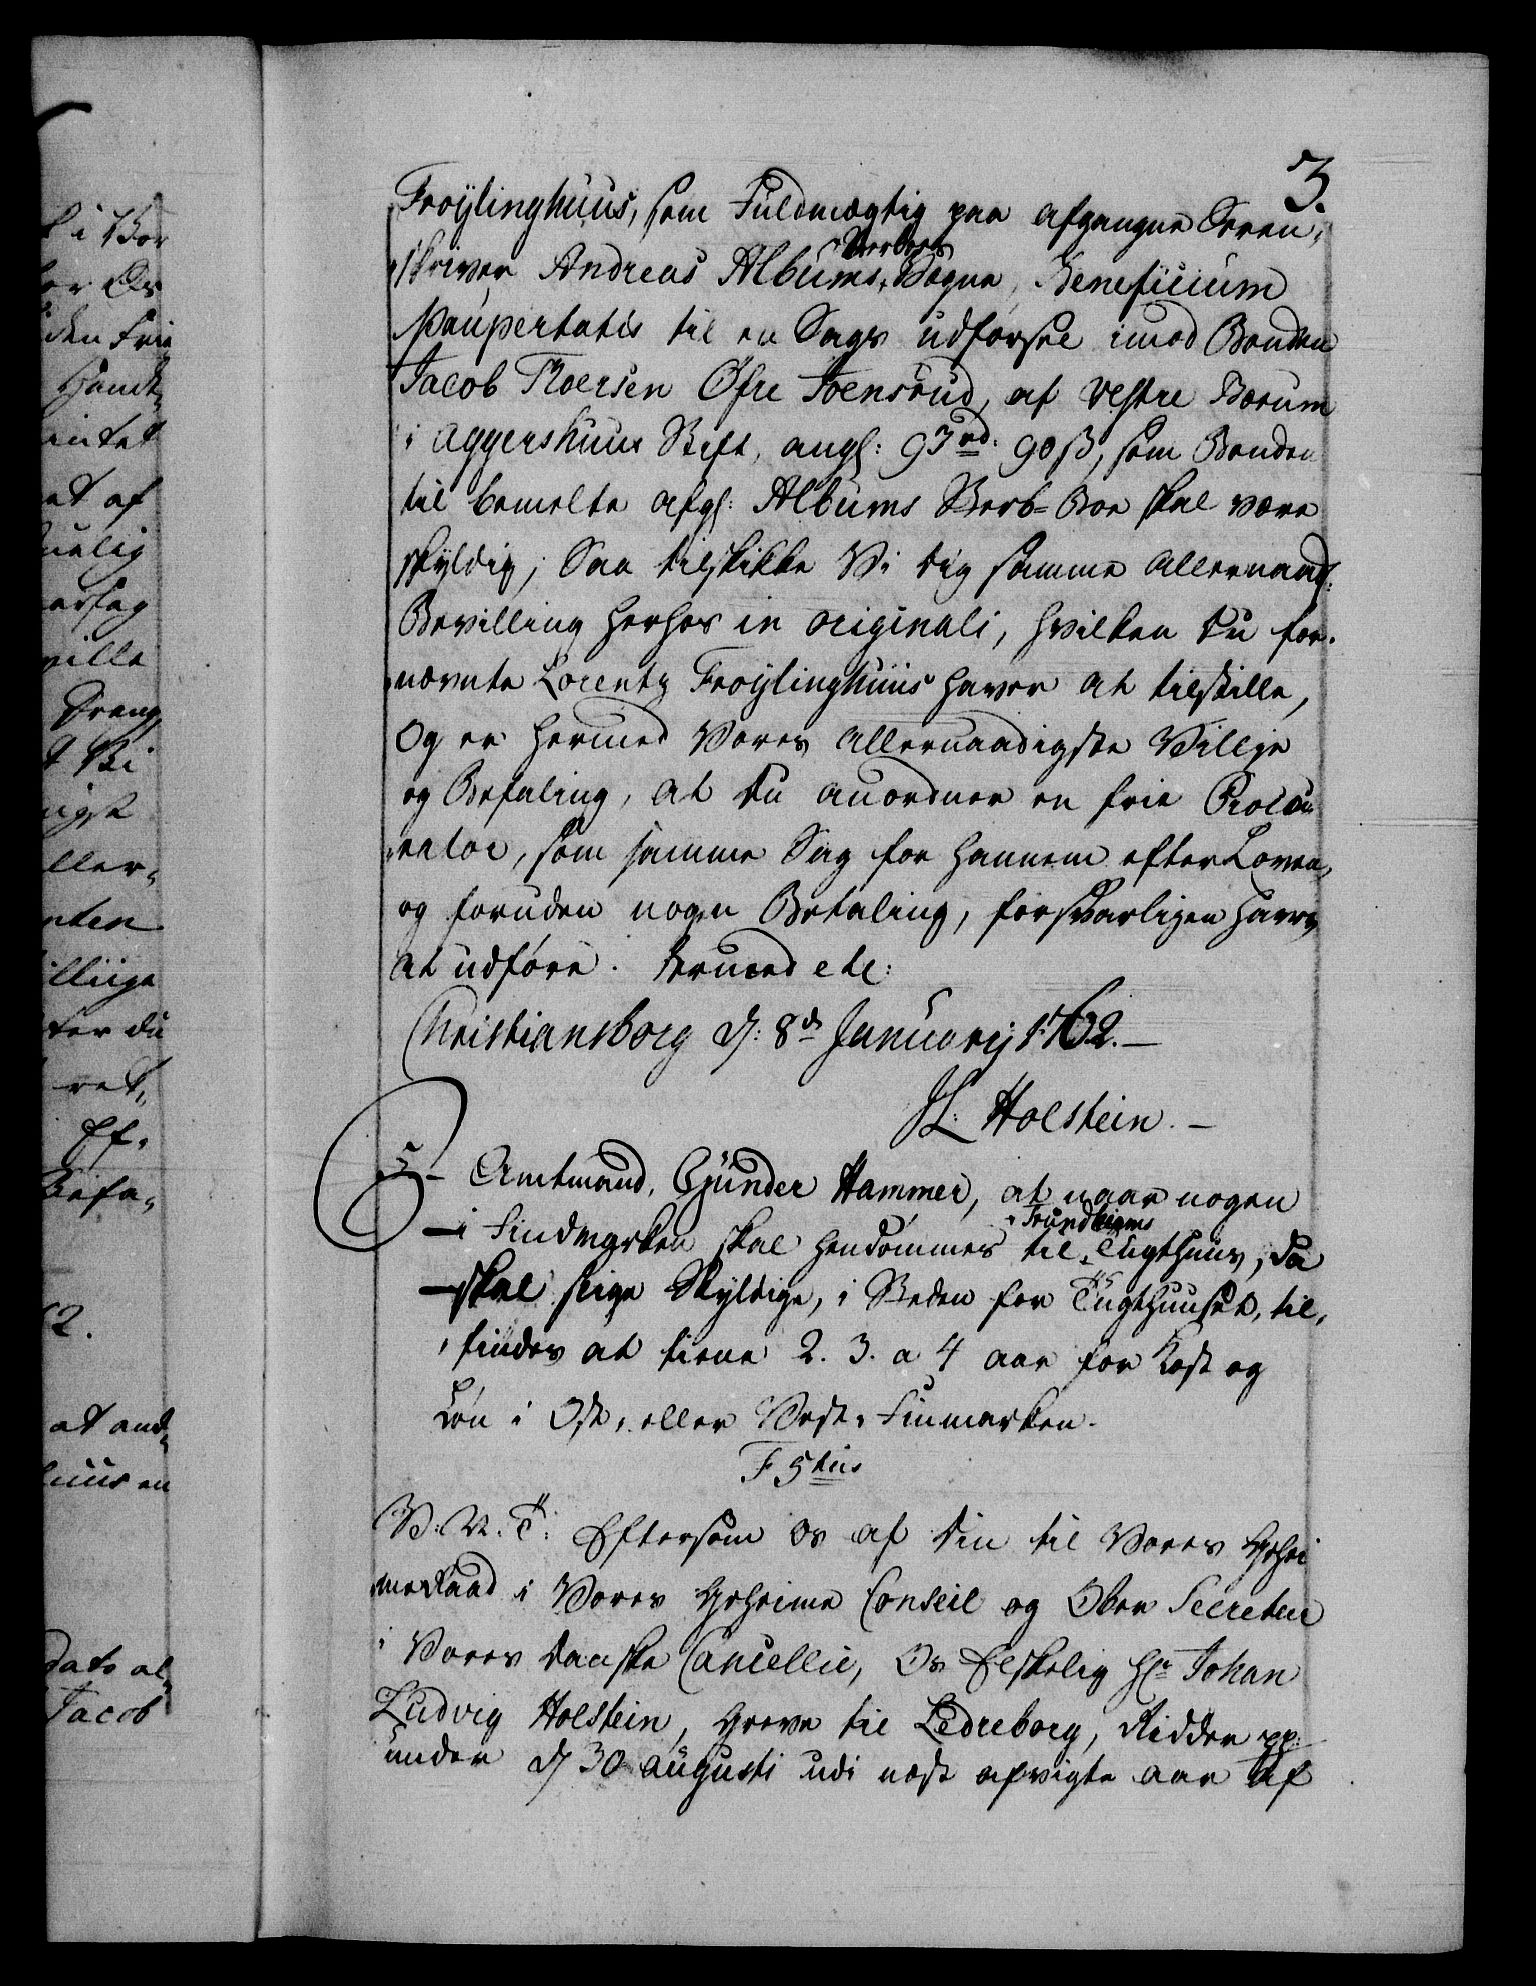 3.
Froÿlinghuus, som Fuldmægtig paa afgangne Soren-
skriver Andreas Albums Sterboes Vegne, Beneficium
Paupertatis til en Sags udførsel imod Bonden
Jacob Thoersen Øfre Toensrud, af Vestre Bærum
i Aggershuus Stift, angl: 97 rd. 90 ß, som Bonden
til bemelte afg: Albums Sterb-Boe skal være
skyldig; Saa tilskikke Vi dig samme allernaad:
Bevilling herhos in originali, hvilken du for-
nævnte Lorentz Froÿlinghuus haver at tilstille,
Og er hermed Vores allernaadigste Villje
og Befaling, at du anordner en frie Procu-
rator, som samme Sag for hannem efter Loven,
og foruden nogen Betaling, forsvarligen haver
at udføre. Dermed etc:
Christiansborg d: 8de Januarij 1762.
JL: Holstein.
5 Amtmand, Gunder Hammer, at naar nogen
i Findmarken skal hendømmes til Trundhiems Tugthuus, da
skal slige Skyldige, i Steden for Tugthuuset, til-
findes at tiene 2. 3. a 4 aar for Kost og
Løn i Ost- eller Vest-Finmarken.
F 5tus
V: V: T: Eftersom Os af Din til Vores Gehei
me Raad i Vores Geheime Conseil og Ober Secreteur
i Vores Danske Cancellie, Os Elskelig Hr Johan
Ludvig Holstein, Greve til Ledreborg, Ridder pp:
under d 30 augusti udi næst afvigte aar af